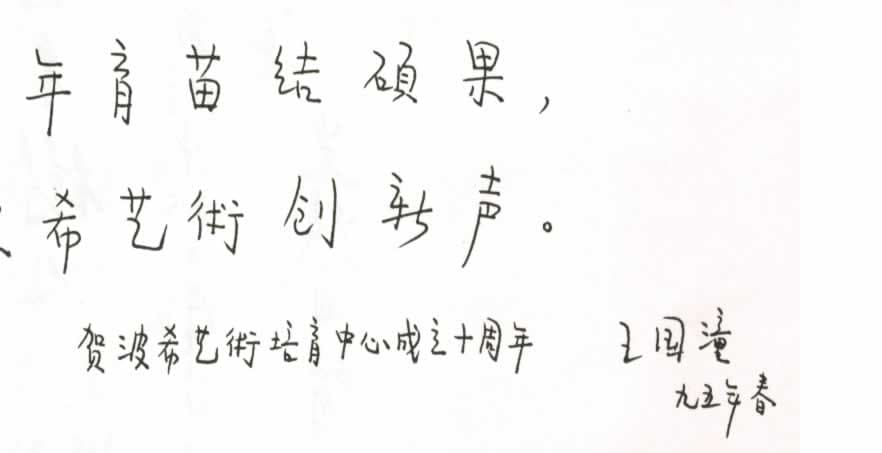 年育苗结硕果，
希艺術创新声。
贺波希艺術培育中心成立十周年 王国潼
九五年春